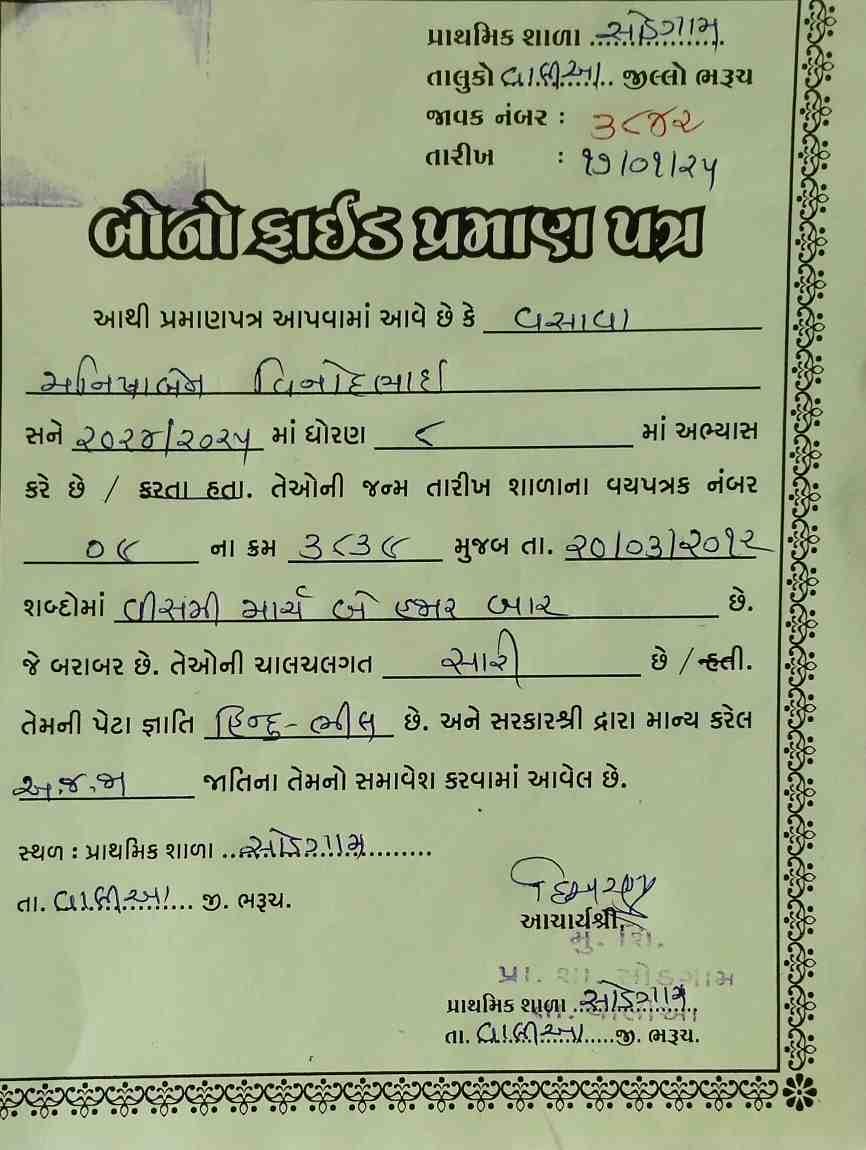 પ્રાથમિક શાળા ..સોડગામ..
તાલુકો વાલીઆ.. જીલ્લો ભરૂચ
જાવક નંબર : ૩૮૪૨
તારીખ : ૧૭/૦૧/૨૫
બોનોફાઈડ પ્રમાણ પત્ર
આથી પ્રમાણપત્ર આપવામાં આવે છે કે વસાવા
મનિષાબેન વિનોદભાઈ
સને ૨૦૨૪/૨૦૨૫ માં ધોરણ ૮ માં અભ્યાસ
કરે છે / કરતા હતા. તેઓની જન્મ તારીખ શાળાના વયપત્રક નંબર
૦૯ ના ક્રમ ૩૮૩૯ મુજબ તા. ૨૦/૦૩/૨૦૧૨
શબ્દોમાં વીસમી માર્ચ બે હજાર બાર છે.
જે બરાબર છે. તેઓની ચાલચલગત સારી છે / ન્હતી.
તેમની પેટા જ્ઞાતિ હિન્દુ - ભીલ છે. અને સરકારશ્રી દ્વારા માન્ય કરેલ
અ.જ.જા જાતિના તેમનો સમાવેશ કરવામાં આવેલ છે.
સ્થળ : પ્રાથમિક શાળા ..સોડગામ..........
તા. વાલીઆ.... જી. ભરૂચ.
આચાર્યશ્રી,
મુ. શિ.
પ્રા. શા. સોડગામ
પ્રાથમિક શાળા ..સોડગામ..
તા. વાલીઆ.....જી. ભરૂચ.